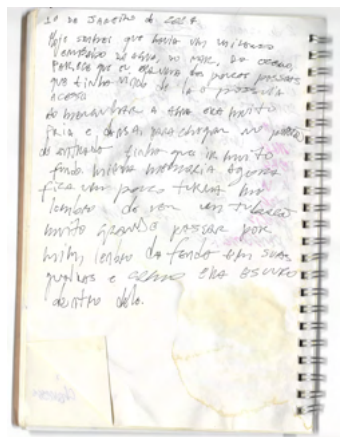 20 de Janeiro de
Hoje sonhei que havia um universo
embaixo da água, no mar, do oceano,
parece que eu era uma das poucas pessoas
que tinha vindo de lá e possuía
acesso
ao mergulhar a água era muito
fria e densa para chegar no portal
de entrada tinha que ir muito
fundo minha memória agora
fica um pouco turva mas
lembro de ver um tubarão
muito grande passar por
mim, lembro da fenda em suas
guelras e como era escuro
dentro dela.